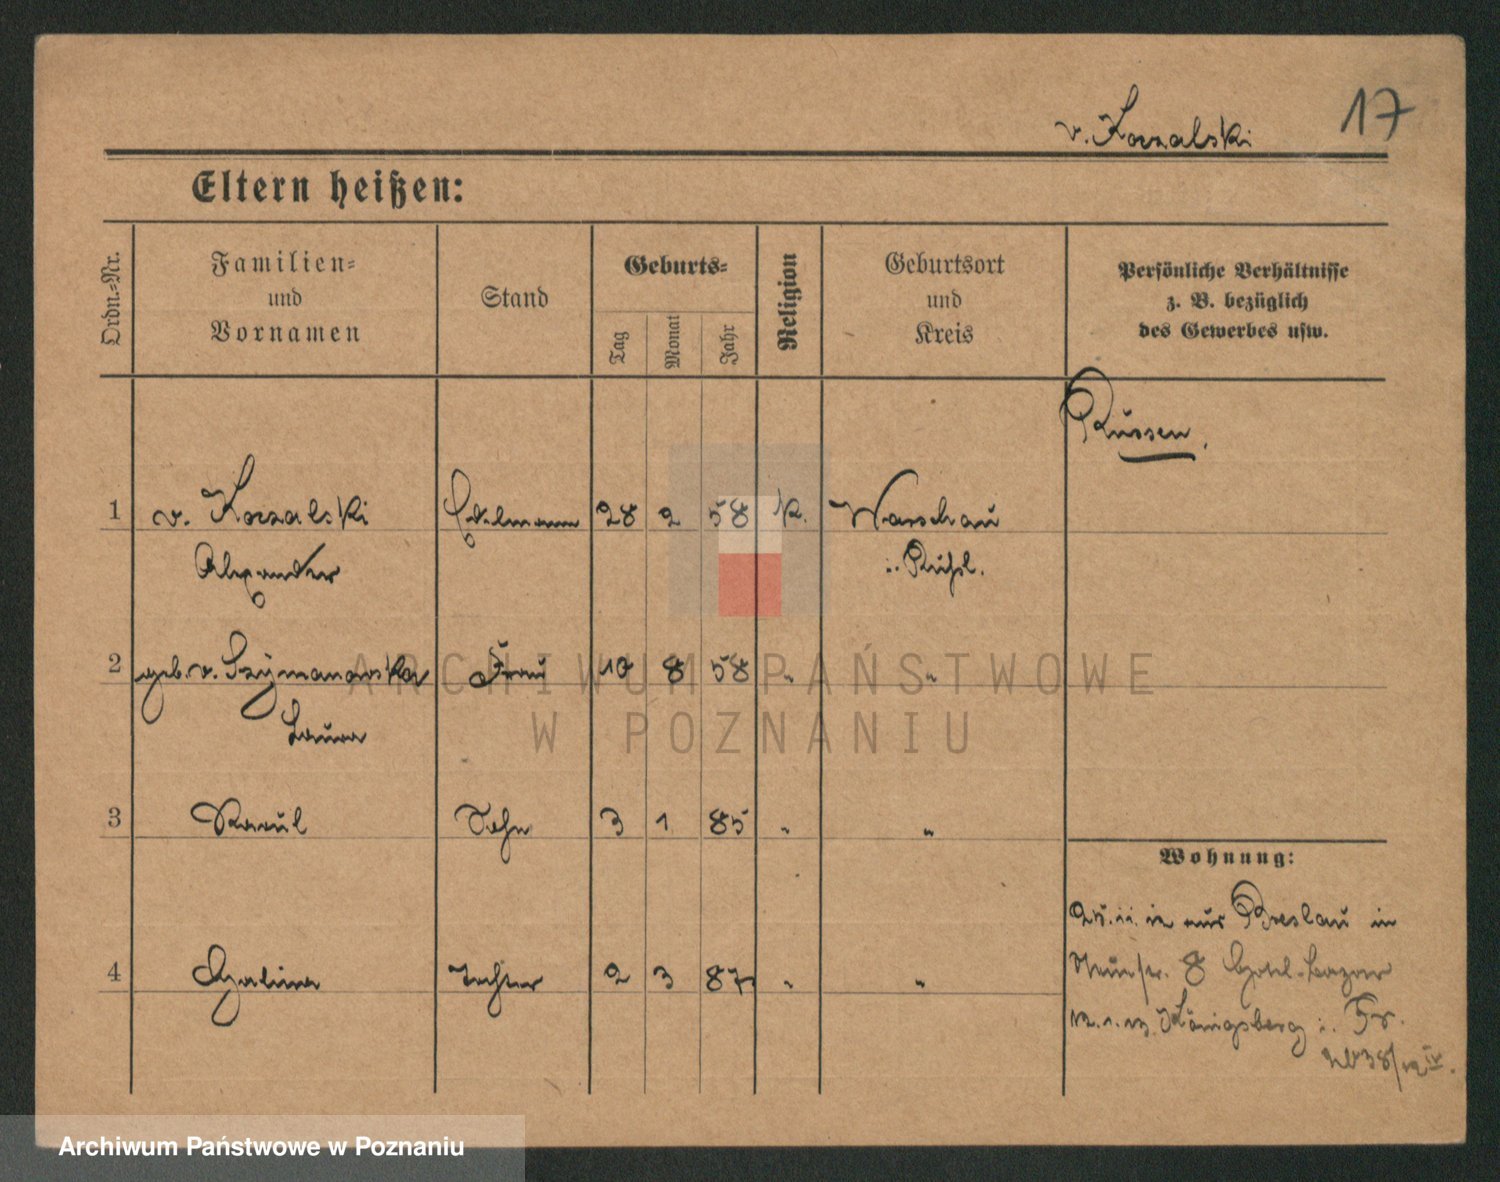 17
v. Koczalski
Eltern heißen:
Ordn.-Nr.
Familien-
und
Vornamen
Stand
Geburts-
Tag
Monat
Jahr
Religion
Geburtsort
und
Kreis
Persönliche Verhältnisse
z. B. bezüglich
des Gewerbes usw.
Russen.
1 v. Koczalski Edelmann 28 2 58 K. Warschau
Alexander i. Rußl.
2 geb. v. Szymanowska Frau 10 8 58 " "
Laura
3 Raoul Sohn 3 1 85 " "
4 Halina Tochter 2 3 87 " "
Wohnung:
aus Breslau in
8 Hotel-Bazar
n. Königsberg i. Pr.
ARCHIWUM PAŃSTWOWE
W POZNANIU
Archiwum Państwowe w Poznaniu